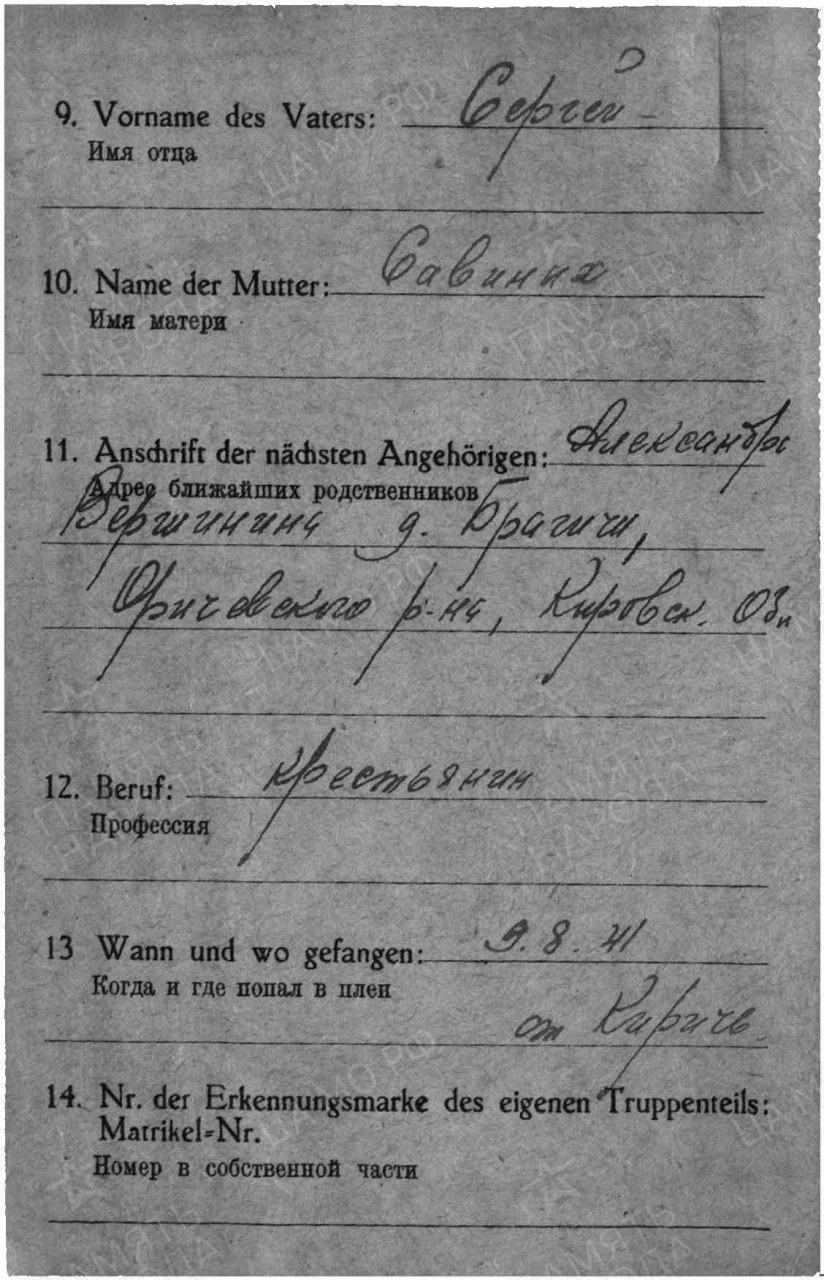 9. Vorname des Vaters: Сергей
Имя отца
10. Name der Mutter: Савиних
Имя матери
11. Anschrift der nächsten Angehörigen: Александра
Адрес ближайших родственников
Вершинина д. Брагичи,
Оричевского р-на, Кировск. Обл
12. Beruf: крестьянин
Профессия
13 Wann und wo gefangen: 9. 8. 41
Когда и где попал в плен
ст Киричь
14. Nr. der Erkennungsmarke des eigenen Truppenteils:
Matrikel=Nr.
Номер в собственной части